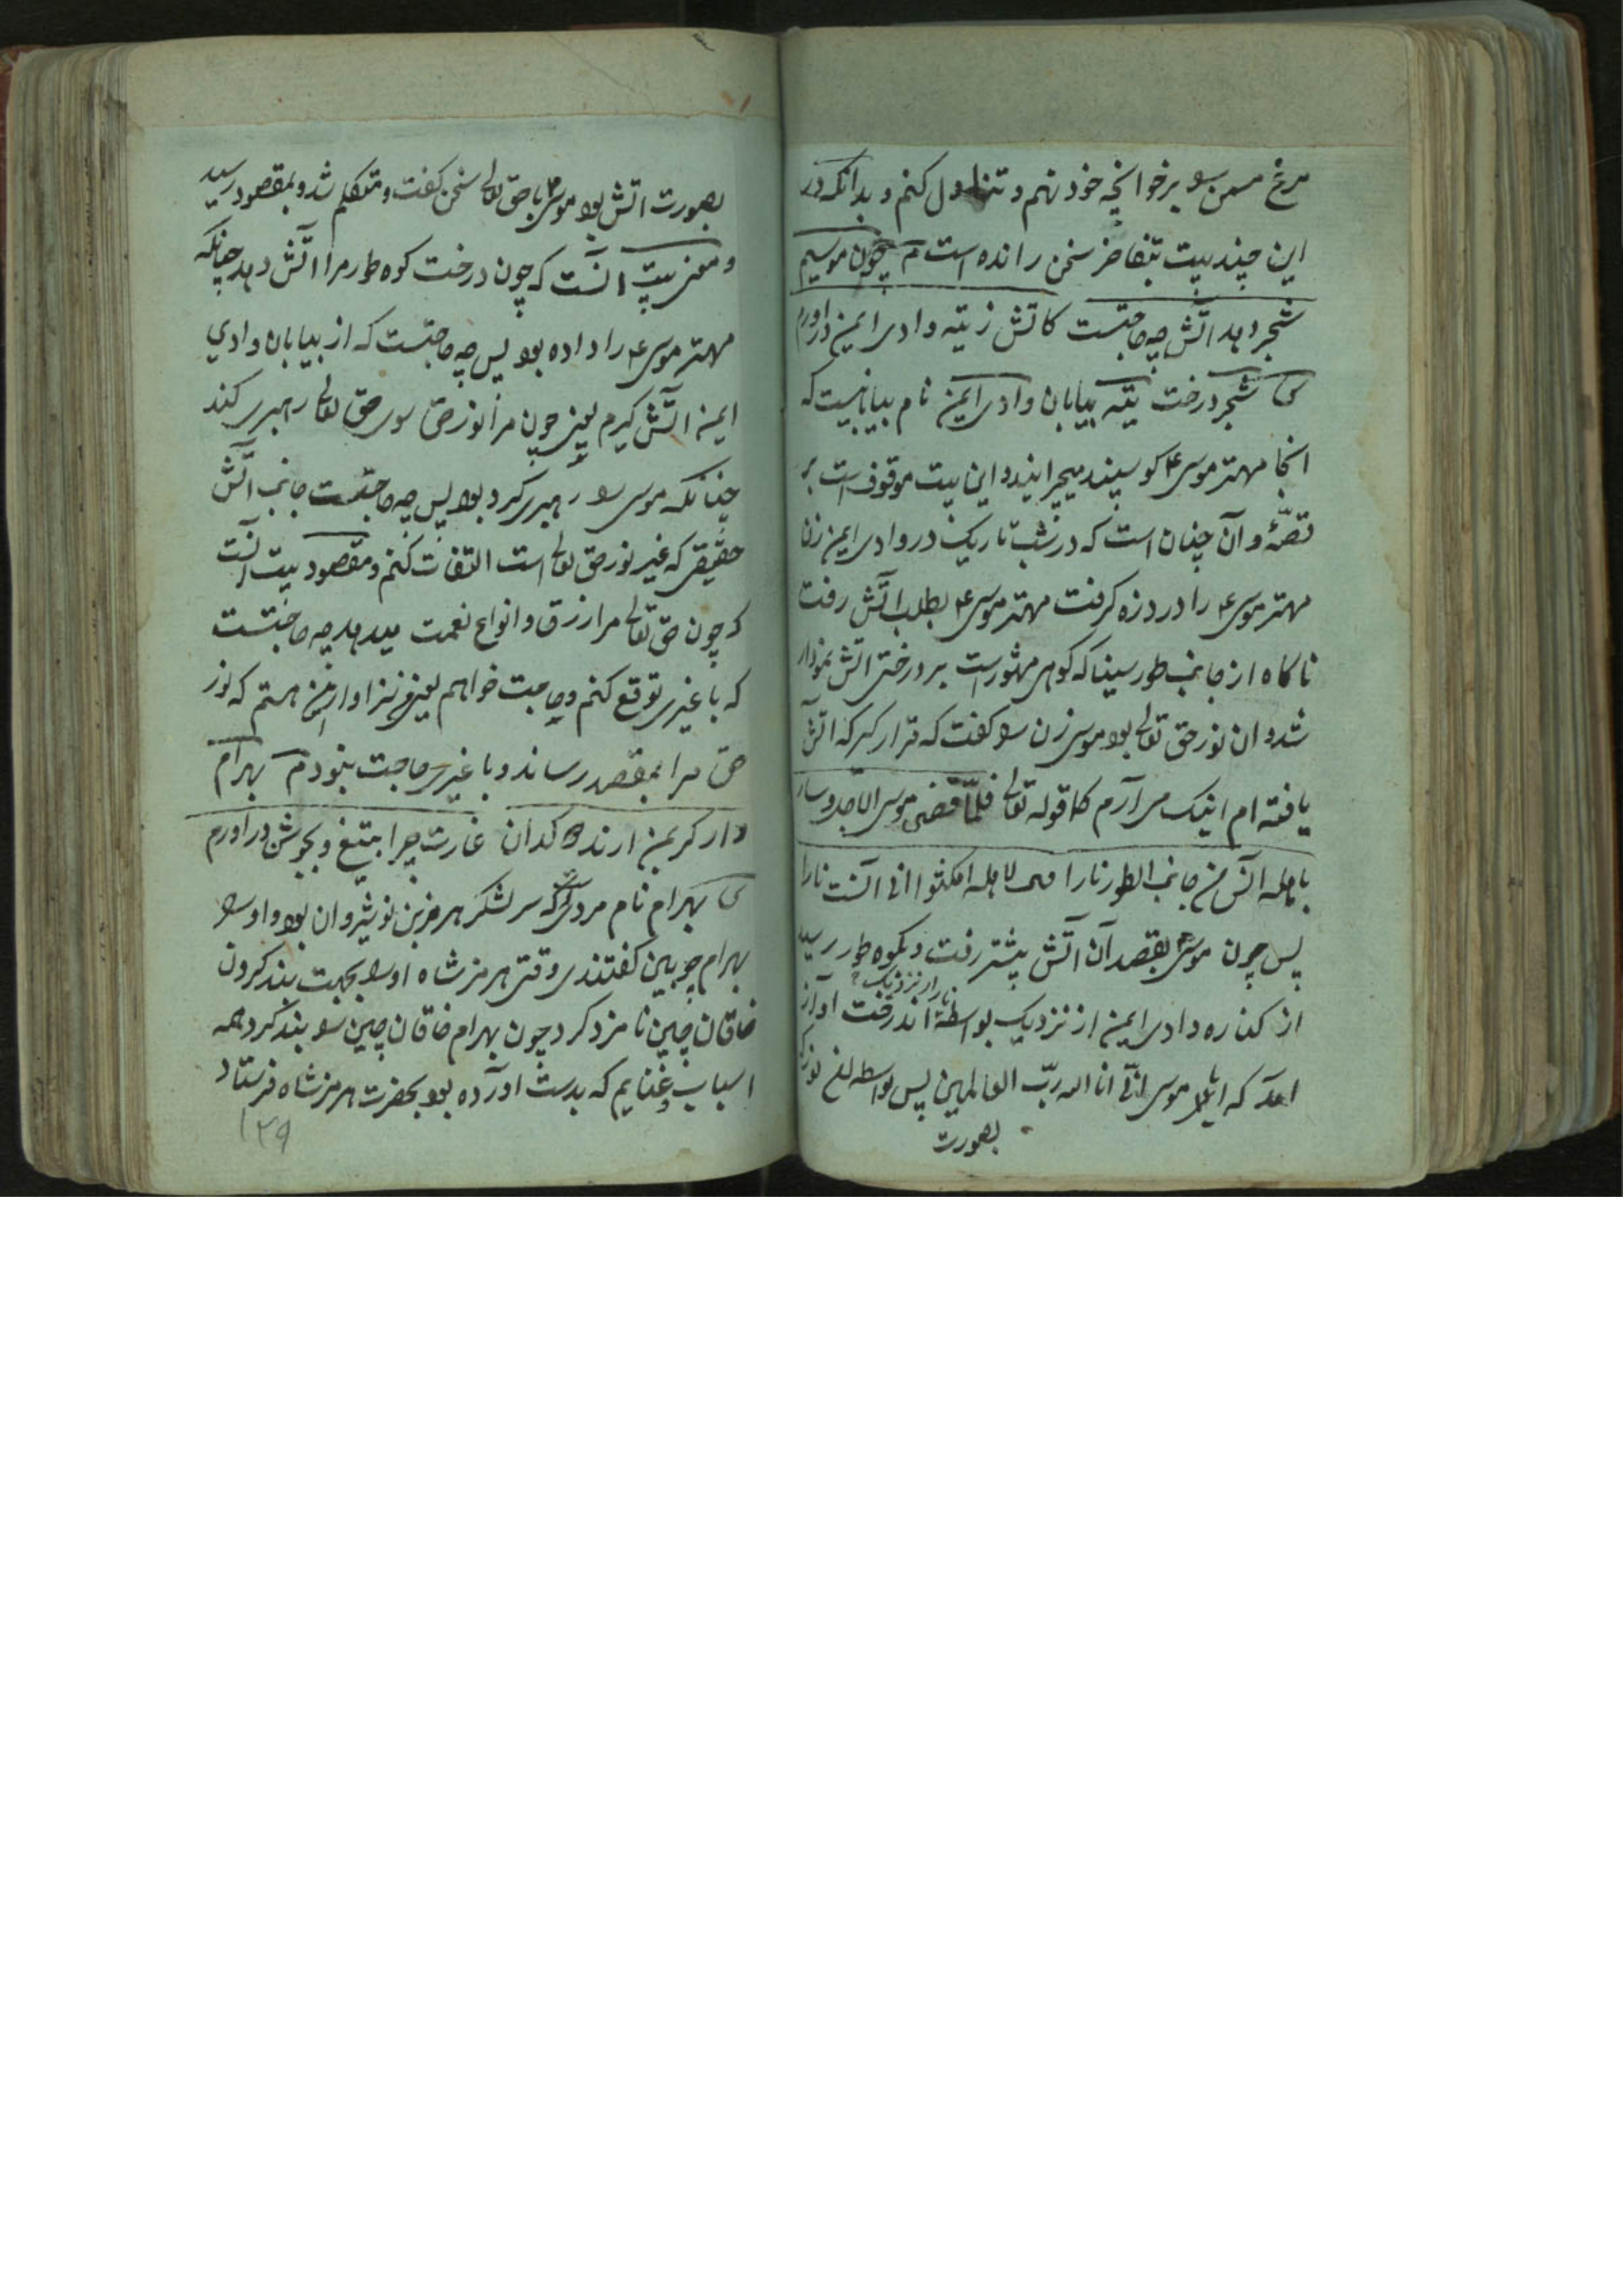 مرغ مسمن را بر خوانچه خود نهم و تناول کنم و بدانکه در
این چند بیت بتفاخر سخن رانده است م چون موسیم
شجر دهد آتش چه حاجتست کاتش ز تیه وادی ایمن در اورم
ش شجر درخت تیه بیابان وادی ایمن نام بیابانیست که
انجا مهتر موسی ع کوسپند میچرانید و این بیت موقوف است بر
قصّهٔ و آن چنان است که در شب تاریک در وادی ایمن زن
مهتر موسی ع را درد زه کرفت مهتر موسی ع بطلب آتش رفت
ناکاه از جانب طور سینا که کوهی مشهور است بر درختی اتش نمودار
شد و ان نور حق تعالی بود موسی زن را کفت که قرار کیر که اتش
یافته ام اینک می آرم کما قوله تعالی فلمّا قضی موسی الاجل و سار
باهله آنس من جانب الطور نارا قال لاهله امکثوا انی آنست نارا
پس چون موسی ع بقصد آن آتش پیشتر رفت و بکوه طور رسید
از کناره وادی ایمن از نزدیک بواسطهٔ اندرخت آواز
آمد که ان یا موسی انّی انا الله ربّ العالمین پس بواسطه نور
بصورت
بصورت اتش بود موسی ع با حق تعالی سخن کفت و متکلم شد و بمقصود رسید
و معنی بیت آنست که چون درخت کوه طور مرا آتش دهد چنانکه
مهتر موسی ع را داده بود پس چه حاجتست که از بیابان وادی
ایمن اتش کیرم یعنی چون مرا نور حق سوی حق تعالی رهبری کند
چنانکه موسی را رهبری کرد بود پس چه حاجتست جانب آتش
حقیقی که غیر نور حق تعالی است التفات کنم و مقصود بیت آنست
که چون حق تعالی مرا رزق و انواع نعمت میدهد چه حاجتست
که با غیری توقع کنم و حاجت خواهم یعنی سزاوار این هستم که نور
حق مرا بمقصد رساند و با غیری حاجت نبود م بهرام
وار کر بمن ارند دوکدان غارت چرا بتیغ و بجوشن در اورم
ش بهرام نام مردی که سر لشکر هرمز بن نوشیروان بود و او را
بهرام چوبین کفتندی وقتی هرمز شاه او را بجهت بند کردن
خاقان چین نامزد کرد چون بهرام خاقان چین را بند کرد همه
اسباب و غنایم که بدست آورده بود بحضرت هرمز شاه فرستاد
۱۳۹